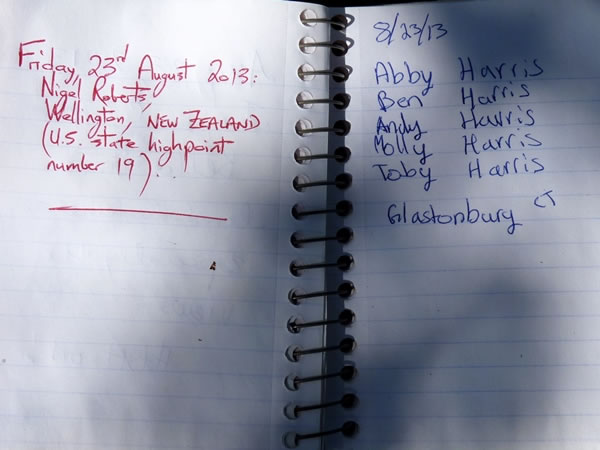 Friday, 23rd August 2013:
Nigel Roberts,
Wellington, NEW ZEALAND
(U.S. state highpoint
number 19).
8/23/13
Abby Harris
Ben Harris
Andy Harris
Molly Harris
Toby Harris
Glastonbury CT